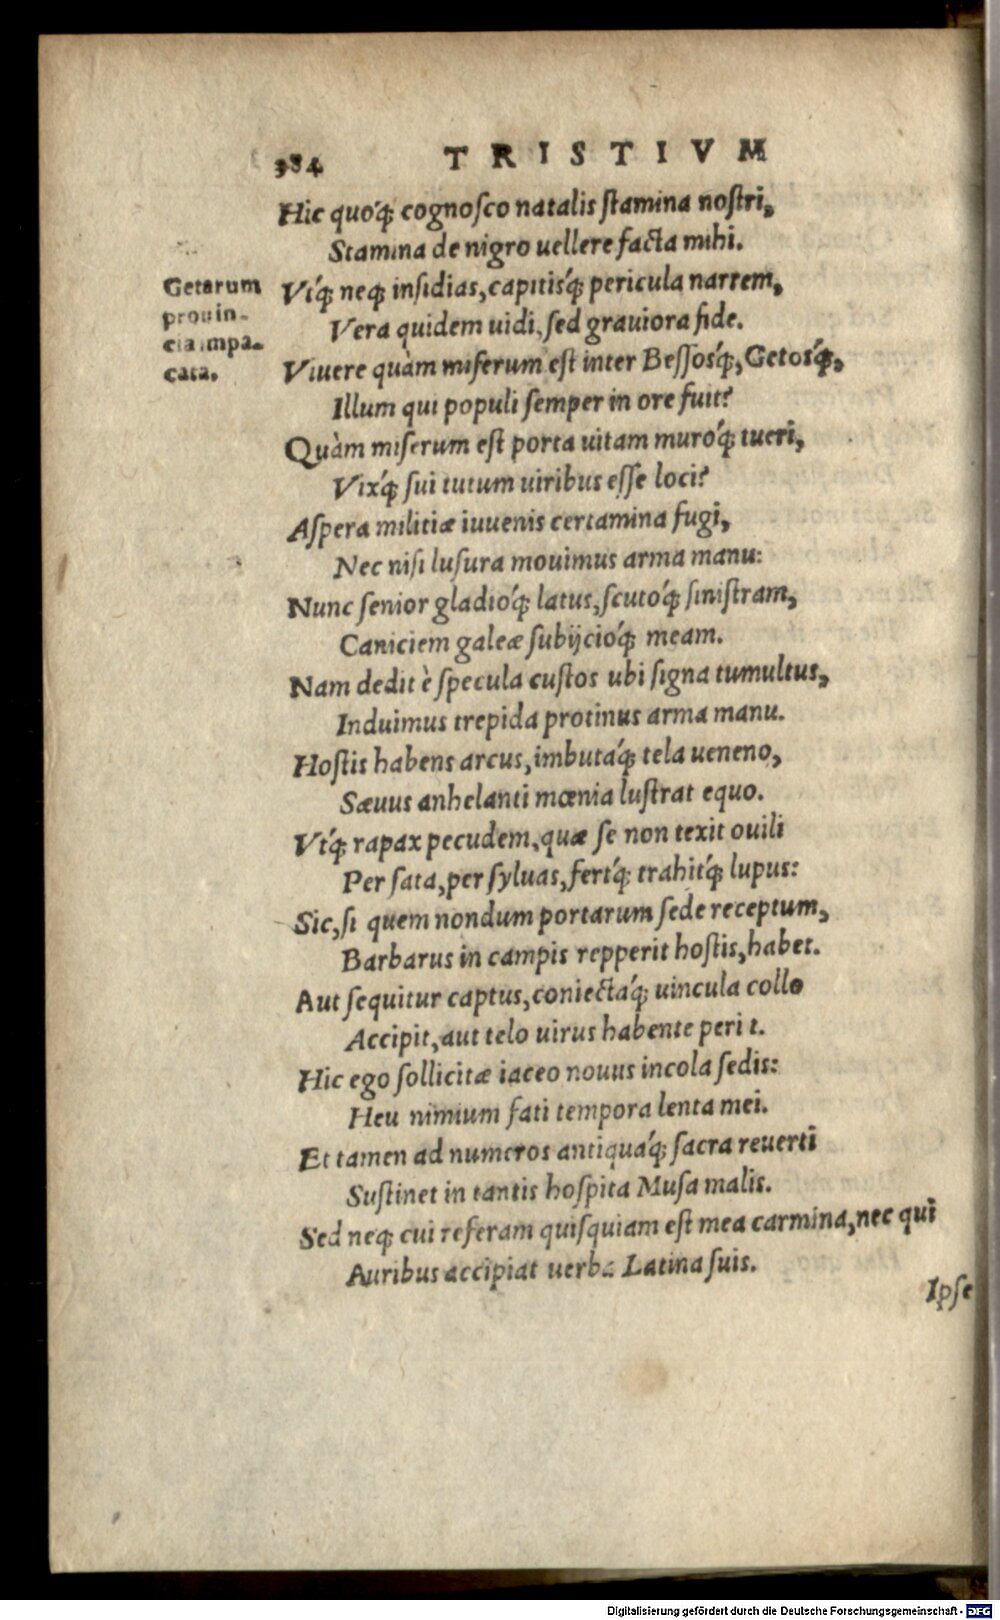 384 TRISTIVM
Hic quóq; cognoſco natalis ſtamina noſtri,
Stamina de nigro uellere facta mihi.
Getarum
prouin-
cia impa-
cata.
Vtq́; neq; inſidias, capitisq́; pericula narrem,
Vera quidem uidi, ſed grauiora fide.
Viuere quàm miſerum eſt inter Beſſosq́;, Getosq́;,
Illum qui populi ſemper in ore fuit?
Quàm miſerum eſt porta uitam muróq; tueri,
Vixq́; ſui tutum uiribus eſſe loci?
Aſpera militiæ iuuenis certamina fugi,
Nec niſi luſura mouimus arma manu:
Nunc ſenior gladióq; latus, ſcutóq; ſiniſtram,
Caniciem galeæ ſubijcióq; meam.
Nam dedit è ſpecula cuſtos ubi ſigna tumultus,
Induimus trepida protinus arma manu.
Hoſtis habens arcus, imbutáq; tela ueneno,
Sæuus anhelanti mœnia luſtrat equo.
Vtq́; rapax pecudem, quæ ſe non texit ouili
Per ſata, per ſyluas, fertq́; trahitq́; lupus:
Sic, ſi quem nondum portarum ſede receptum,
Barbarus in campis repperit hoſtis, habet.
Aut ſequitur captus, coniectáq; uincula collo
Accipit, aut telo uirus habente peri t.
Hic ego ſollicitæ iaceo nouus incola ſedis:
Heu nimium fati tempora lenta mei.
Et tamen ad numeros antiquáq; ſacra reuerti
Suſtinet in tantis hoſpita Muſa malis.
Sed neq; cui referam quiſquiam eſt mea carmina, nec qui
Auribus accipiat uerba Latina ſuis.
Ipſe
Digitalisierung gefördert durch die Deutsche Forschungsgemeinschaft - DFG